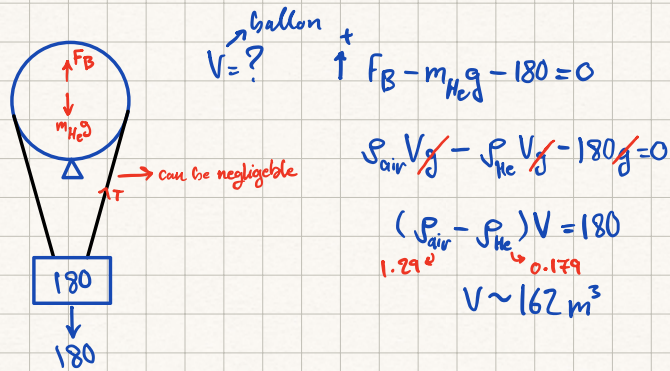 ballon
V = ?
F_B
m_He g
T
can be negligeble
180
180
+
F_B - m_He g - 180 = 0
ρ_air V g - ρ_He V g - 180 g = 0
(ρ_air - ρ_He) V = 180
1.29 0.179
V ~ 162 m³